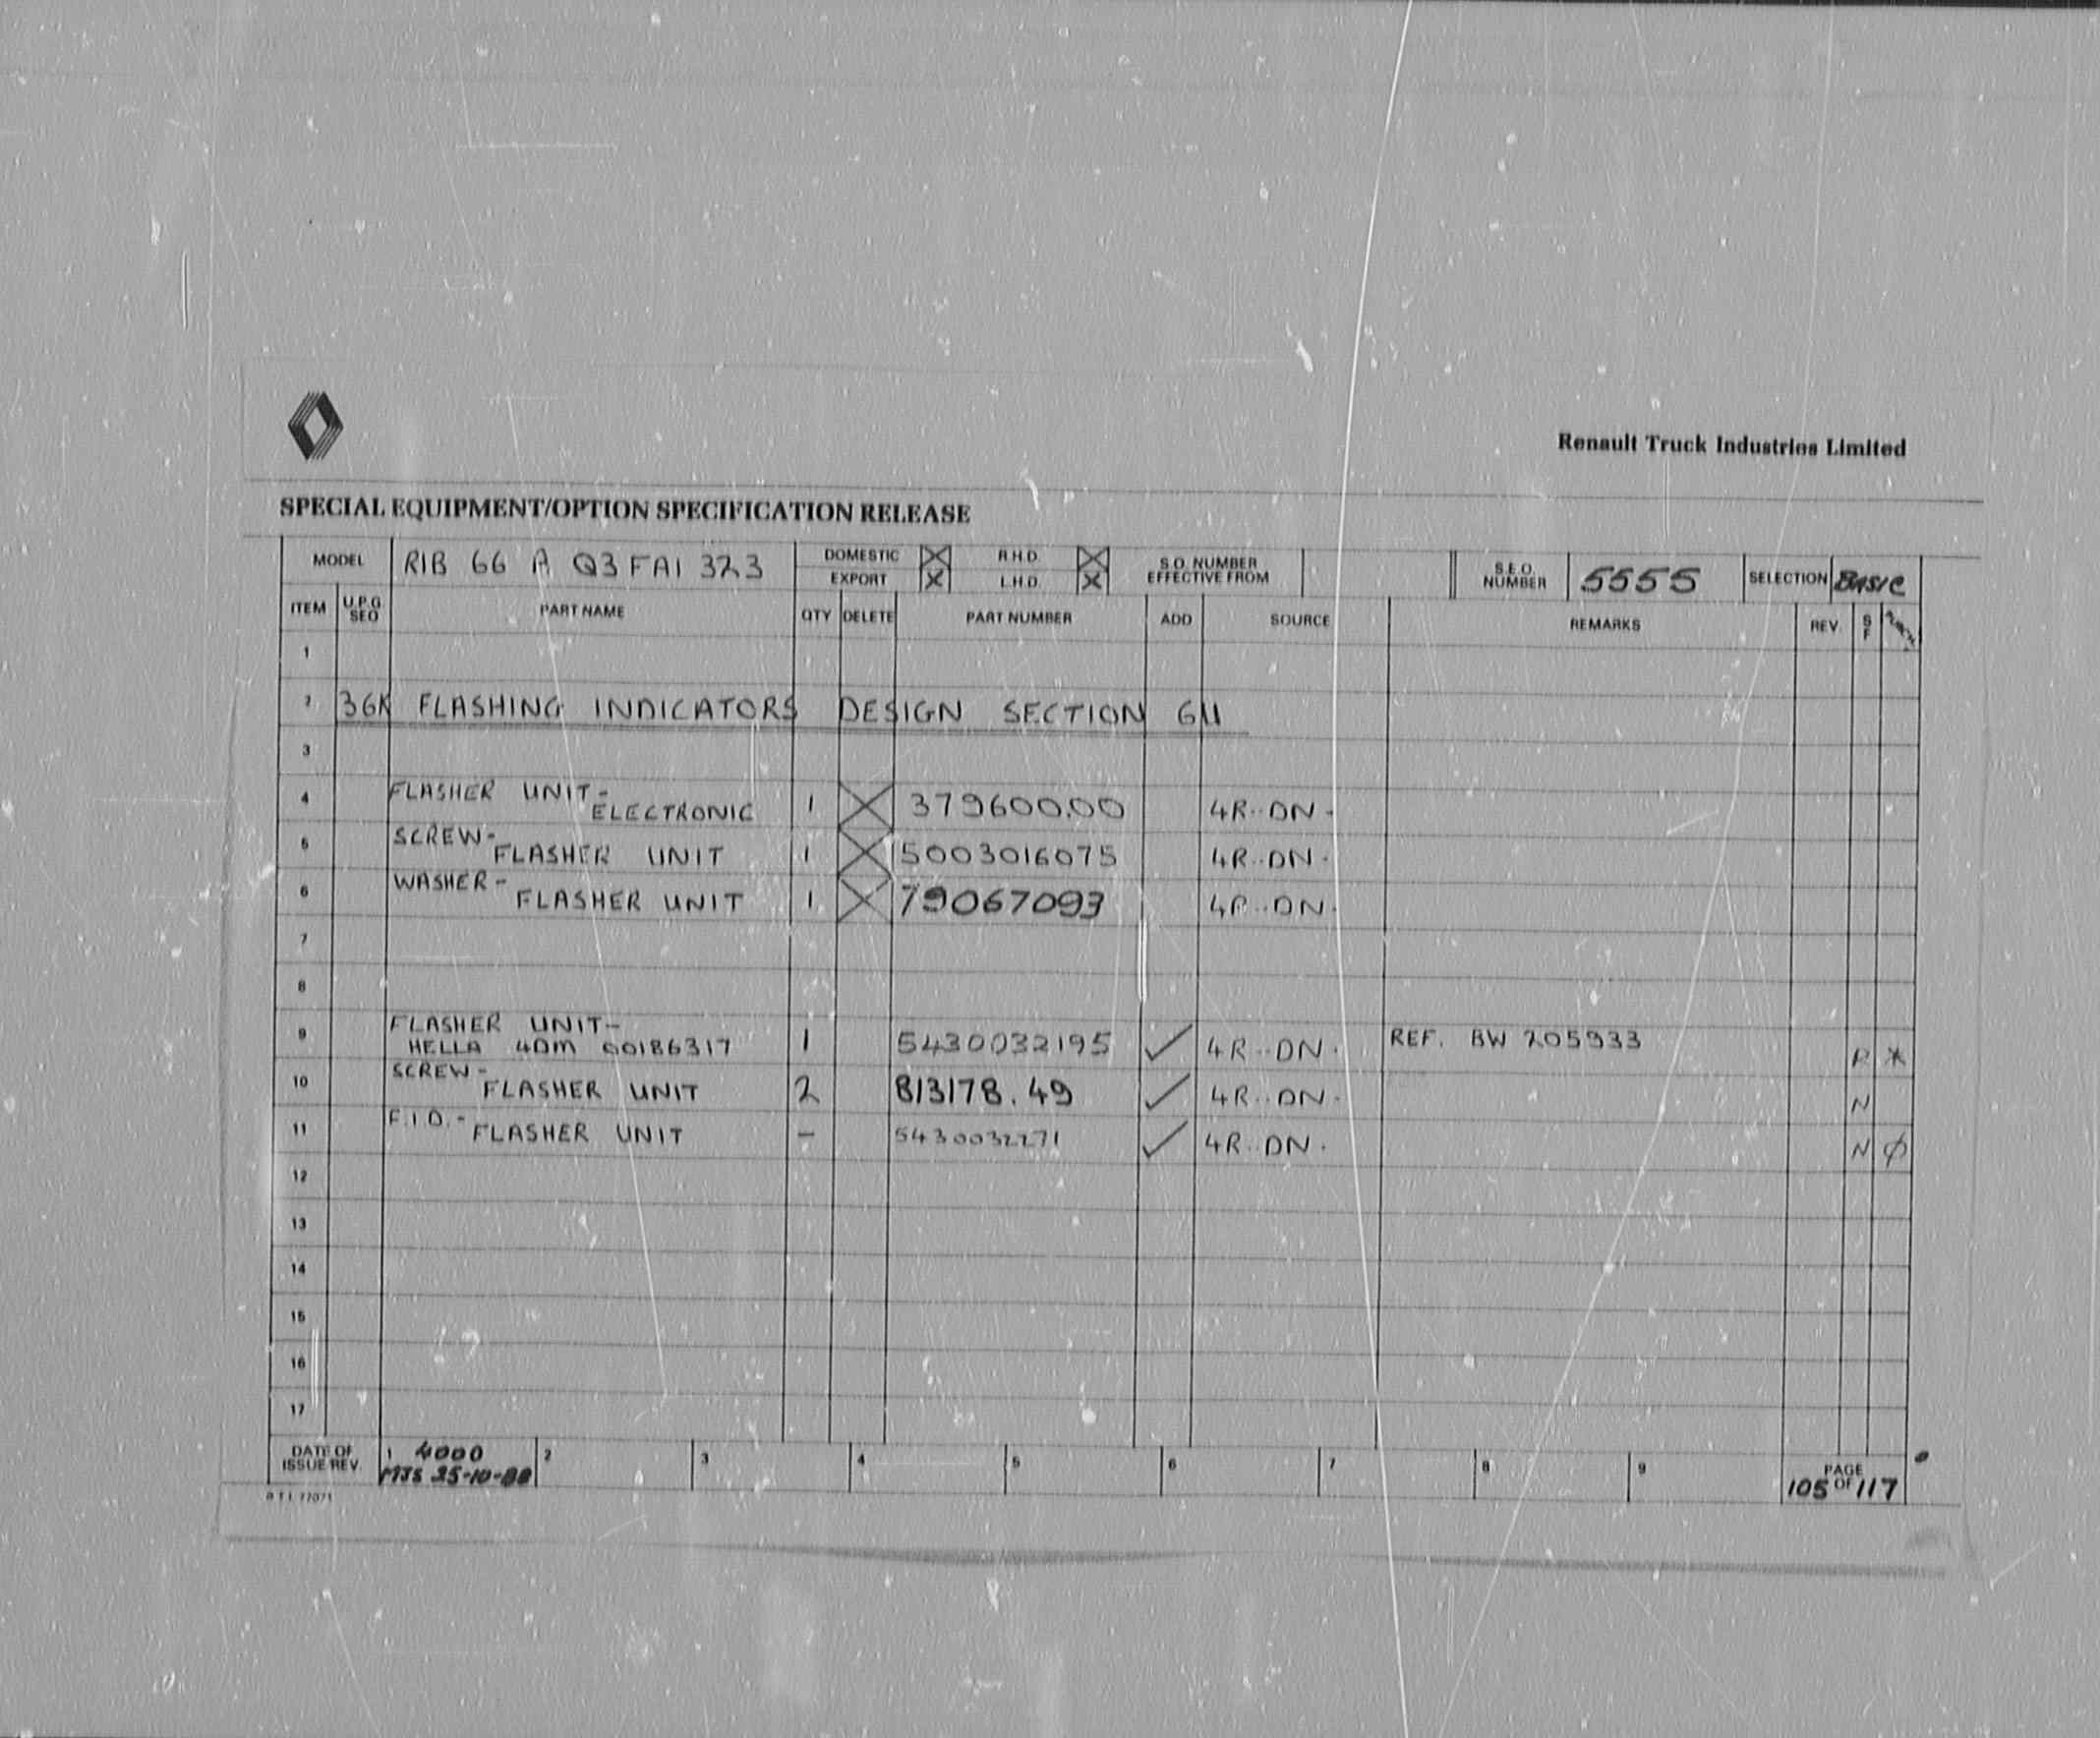 Renault Truck Industries Limited
SPECIAL EQUIPMENT/OPTION SPECIFICATION RELEASE
MODEL RIB 66 A Q3 FAI 323 DOMESTIC R.H.D. S.O. NUMBER EFFECTIVE FROM S.E.O. NUMBER 5555 SELECTION BASIC
EXPORT L.H.D.
ITEM U.P.G SEQ PART NAME QTY DELETE PART NUMBER ADD SOURCE REMARKS REV. S F
1
2 36K FLASHING INDICATORS DESIGN SECTION 6U
3
4 FLASHER UNIT-
ELECTRONIC 1 379600.00 4R..DN.
5 SCREW-
FLASHER UNIT 1 5003016075 4R..DN.
6 WASHER-
FLASHER UNIT 1 79067093 4R..DN.
7
8
9 FLASHER UNIT-
HELLA 4DM 00186317 1 5430032195 ✓ 4R..DN. REF. BW 205933 R *
10 SCREW-
FLASHER UNIT 2 813178.49 ✓ 4R..DN. N
11 F.I.D.-
FLASHER UNIT - 5430032271 ✓ 4R..DN. N ϕ
12
13
14
15
16
17
DATE OF ISSUE REV. 1 4000 2 3 4 5 6 7 8 9 PAGE
MJS 25-10-88 105 OF 117
R T I 77071